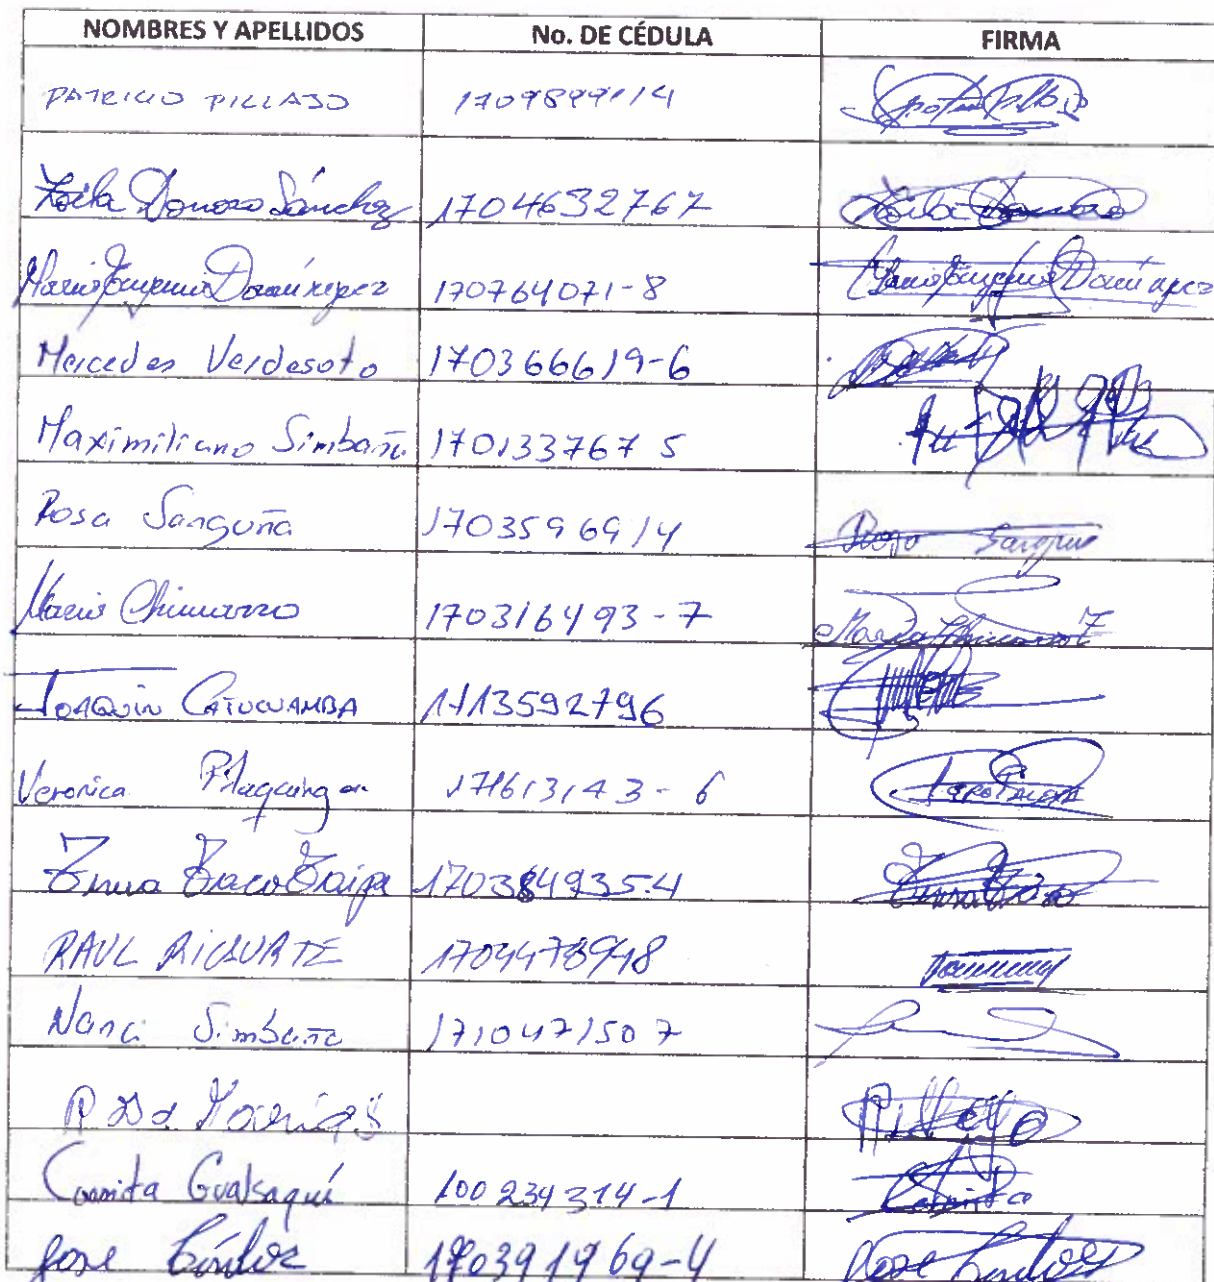 NOMBRES Y APELLIDOS No. DE CÉDULA FIRMA
PATRICIO PILLAJO 1709899114
Zoila Donoso Sánchez 1704632767 Zoila Donoso
Maria Eugenia Domínguez 170764071-8 Maria Eugenia Domínguez
Mercedes Verdesoto 170366619-6
Maximiliano Simbaña 170133767 5
Rosa Sanguña 1703596914 Rosa Sanguña
Maria Chimarro 170316493-7 Maria Chimarro
JOAQUIN CATUCUAMBA 1713592796
Veronica Pilaquinga 171613143-6
Emma Taco Taipe 170384935-4 Emma Taco
RAUL RICAURTE 1704478948
Nanci Simbaña 1710471507
Carmita Gualsaquí 100234314-1 Carmita
Jose 170391769-4 Jose